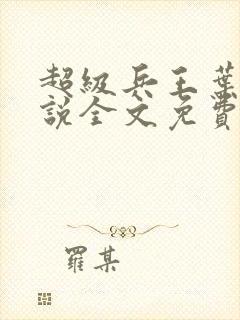 超级兵王葉
説全文免費
羅某